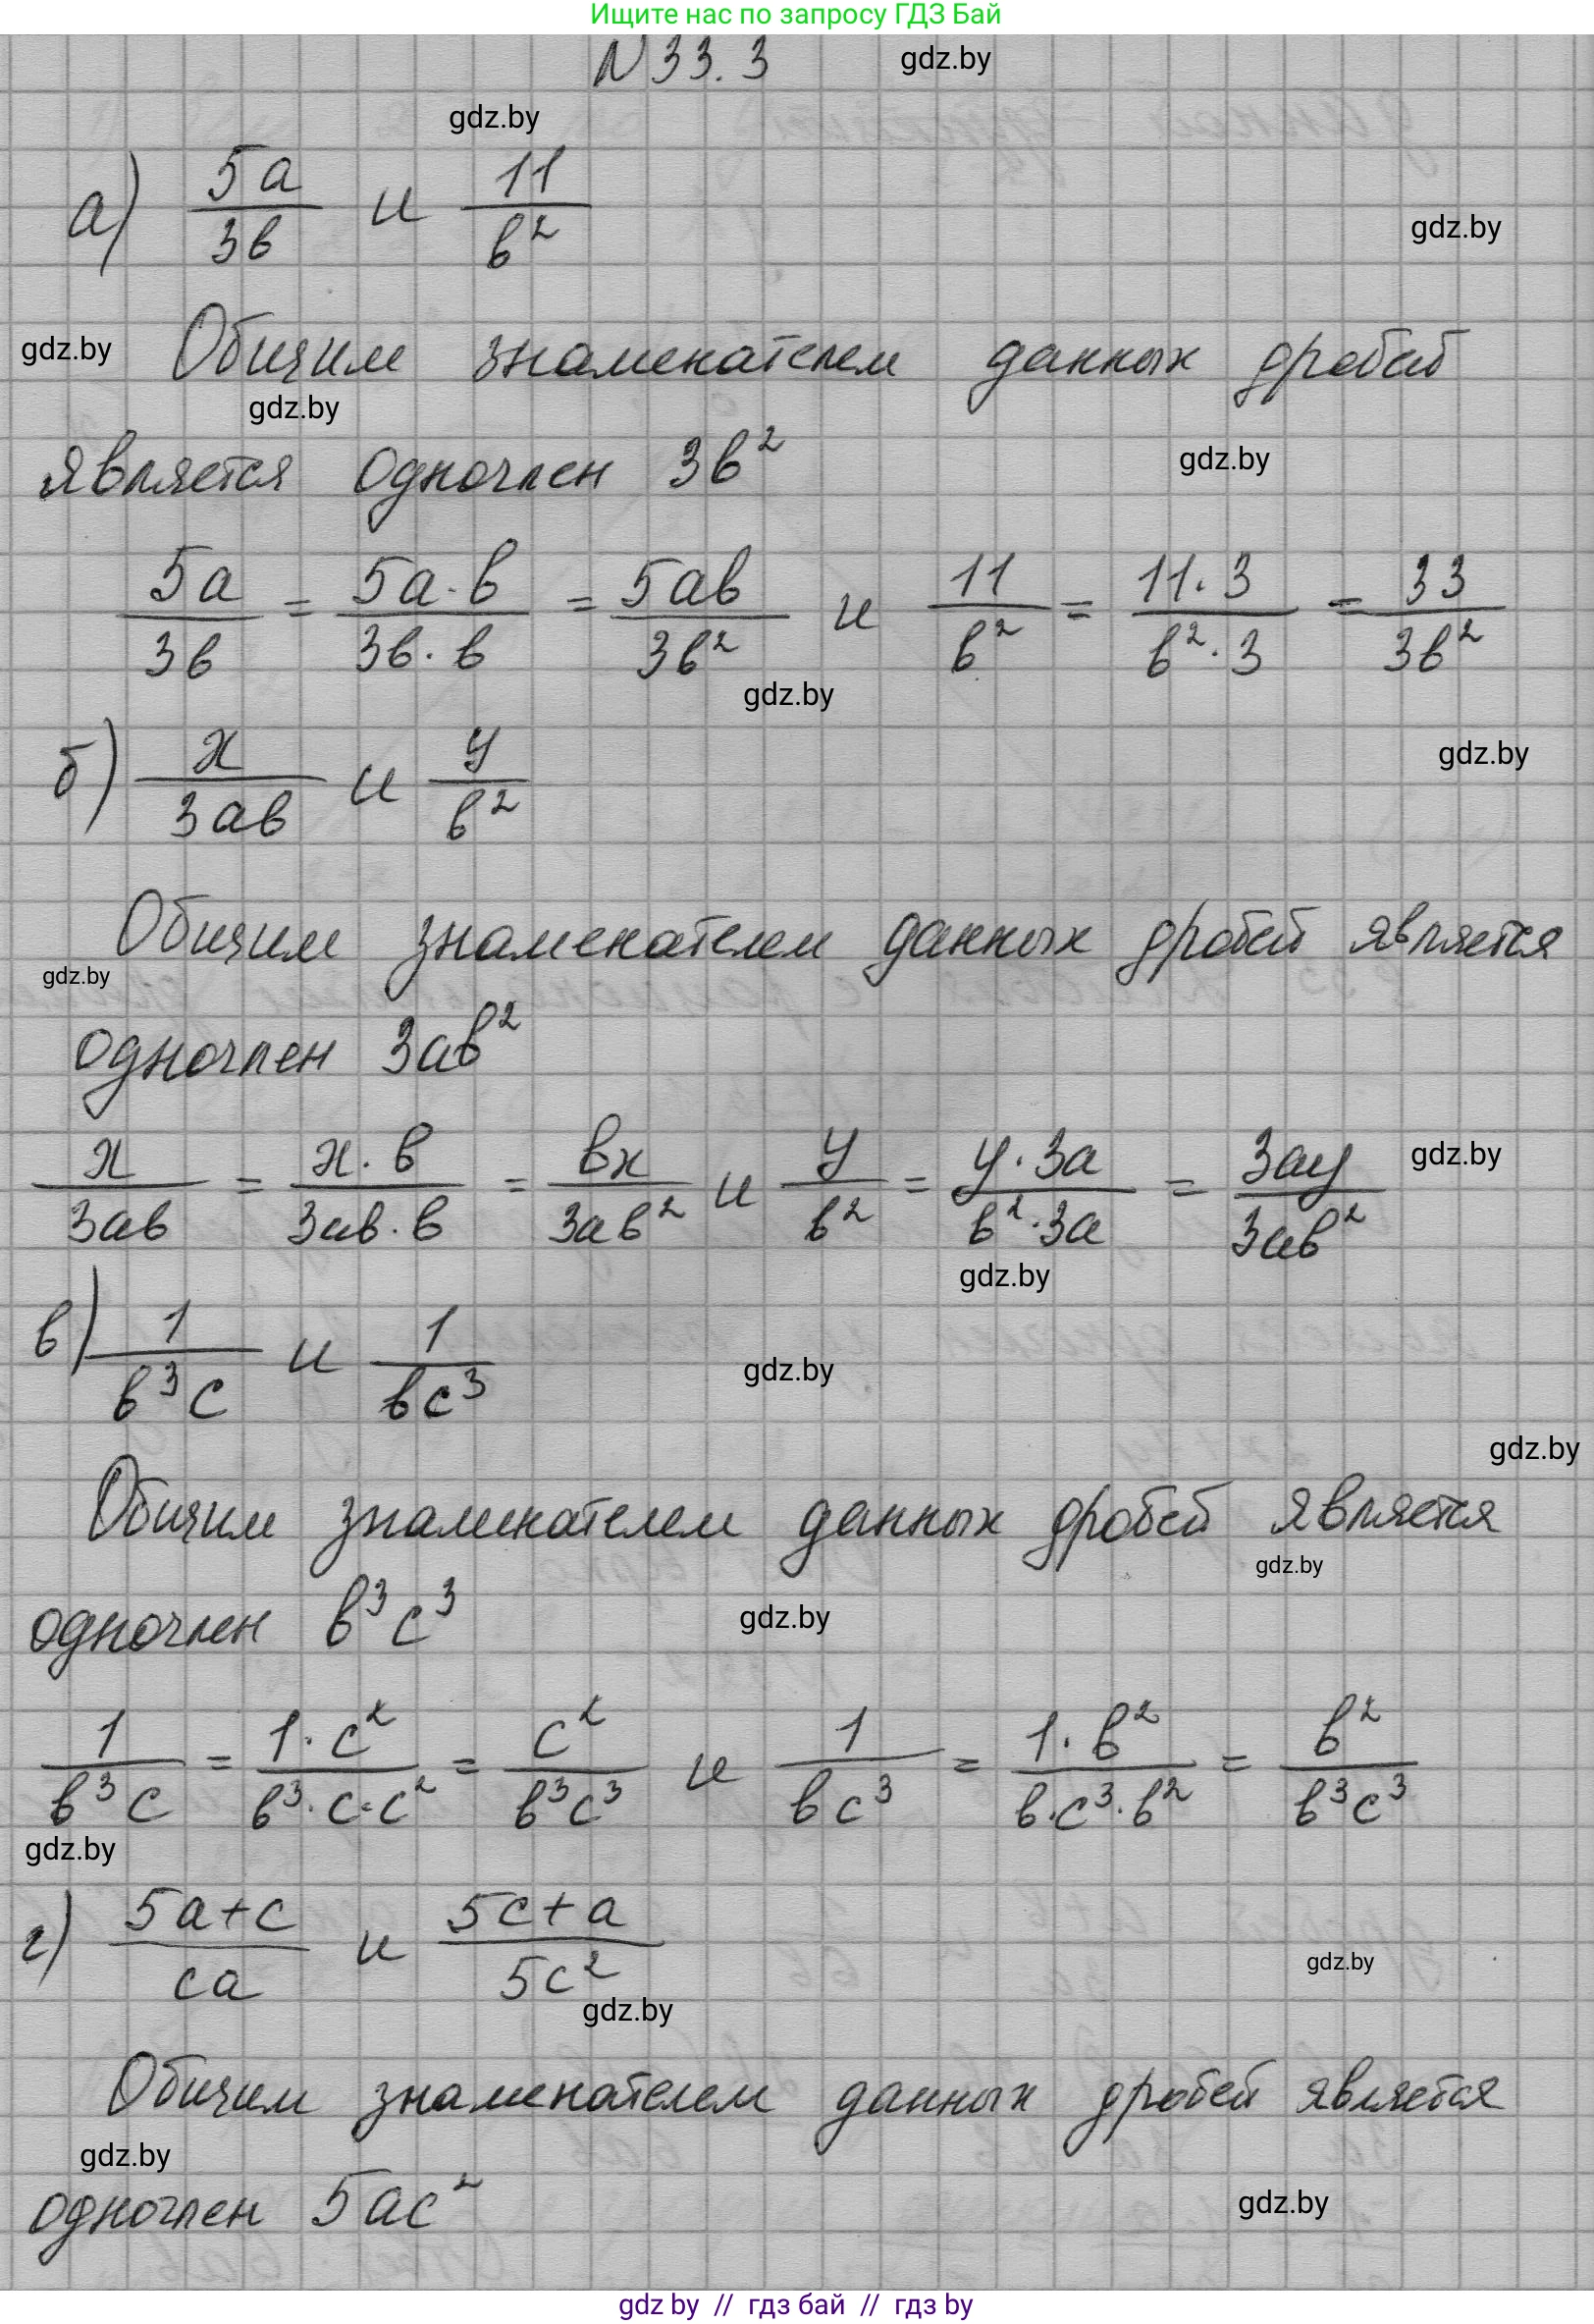 Ищите нас по запросу ГДЗ Бай
N 33.3
gdz.by
gdz.by
а) 5a/3b и 11/b²
gdz.by
gdz.by
Общим знаменателем данных дробей
gdz.by
является одночлен 3b²
gdz.by
5a/3b = 5a·b/3b·b = 5ab/3b² и 11/b² = 11·3/b²·3 = 33/3b²
gdz.by
б) x/3ab и y/b²
gdz.by
Общим знаменателем данных дробей является
gdz.by
одночлен 3ab²
x/3ab = x·b/3ab·b = bx/3ab² и y/b² = y·3a/b²·3a = 3ay/3ab²
gdz.by
gdz.by
в) 1/b³c и 1/bc³
gdz.by
gdz.by
Общим знаменателем данных дробей является
gdz.by
одночлен b³c³
gdz.by
1/b³c = 1·c²/b³·c·c² = c²/b³c³ и 1/bc³ = 1·b²/b·c³·b² = b²/b³c³
gdz.by
г) 5a+c/ca и 5c+a/5c²
gdz.by
gdz.by
Общим знаменателем данных дробей является
gdz.by
одночлен 5ac²
gdz.by
gdz by // гдз бай // гдз by